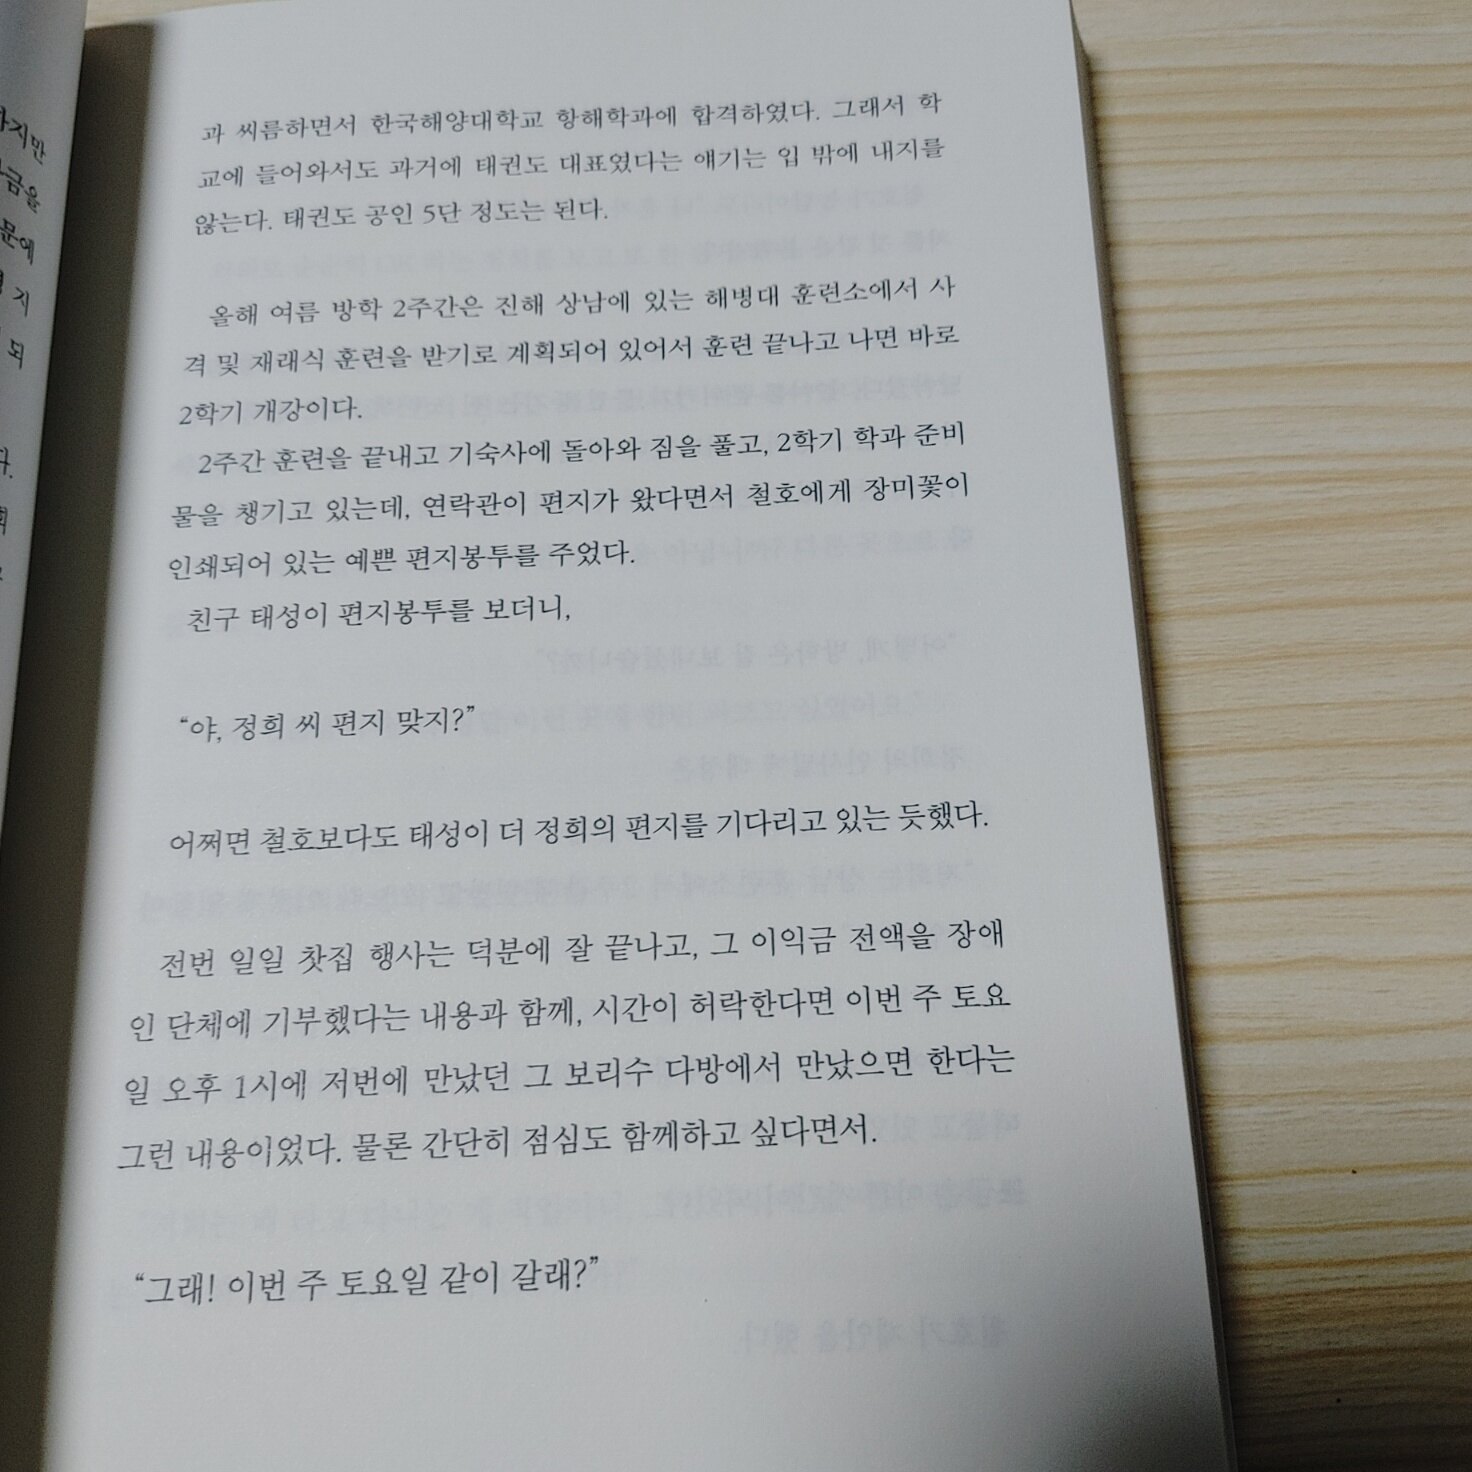 과 씨름하면서 한국해양대학교 항해학과에 합격하였다. 그래서 학
교에 들어와서도 과거에 태권도 대표였다는 얘기는 입 밖에 내지를
않는다. 태권도 공인 5단 정도는 된다.
올해 여름 방학 2주간은 진해 상남에 있는 해병대 훈련소에서 사
격 및 재래식 훈련을 받기로 계획되어 있어서 훈련 끝나고 나면 바로
2학기 개강이다.
2주간 훈련을 끝내고 기숙사에 돌아와 짐을 풀고, 2학기 학과 준비
물을 챙기고 있는데, 연락관이 편지가 왔다면서 철호에게 장미꽃이
인쇄되어 있는 예쁜 편지봉투를 주었다.
친구 태성이 편지봉투를 보더니,
“야, 정희 씨 편지 맞지?”
어쩌면 철호보다도 태성이 더 정희의 편지를 기다리고 있는 듯했다.
전번 일일 찻집 행사는 덕분에 잘 끝나고, 그 이익금 전액을 장애
인 단체에 기부했다는 내용과 함께, 시간이 허락한다면 이번 주 토요
일 오후 1시에 저번에 만났던 그 보리수 다방에서 만났으면 한다는
그런 내용이었다. 물론 간단히 점심도 함께하고 싶다면서.
“그래! 이번 주 토요일 같이 갈래?”